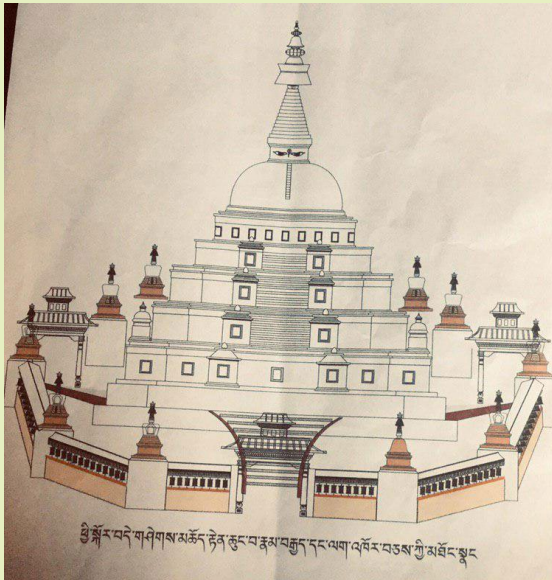 ཕྱི་སྐོར་བདེ་གཤེགས་མཆོད་རྟེན་ཆུང་བ་རྣམ་བརྒྱད་དང་ལག་འཁོར་བཅས་ཀྱི་མཐོང་སྣང